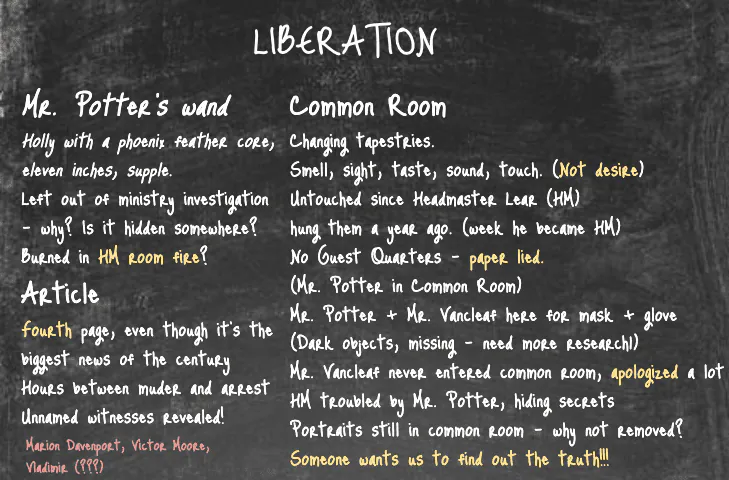 LIBERATION
Mr. Potter's wand
Holly with a phoenix feather core,
eleven inches, supple.
Left out of ministry investigation
- why? Is it hidden somewhere?
Burned in HM room fire?
Article
Fourth page, even though it's the
biggest news of the century
Hours between muder and arrest
Unnamed witnesses revealed!
Marion Davenport, Victor Moore,
Vladimir (???)
Common Room
Changing tapestries.
Smell, sight, taste, sound, touch. (Not desire)
Untouched since Headmaster Lear (HM)
hung them a year ago. (week he became HM)
No Guest Quarters - paper lied.
(Mr. Potter in Common Room)
Mr. Potter + Mr. Vancleaf here for mask + glove
(Dark objects, missing - need more research!)
Mr. Vancleaf never entered common room, apologized a lot
HM troubled by Mr. Potter, hiding secrets
Portraits still in common room - why not removed?
Someone wants us to find out the truth!!!